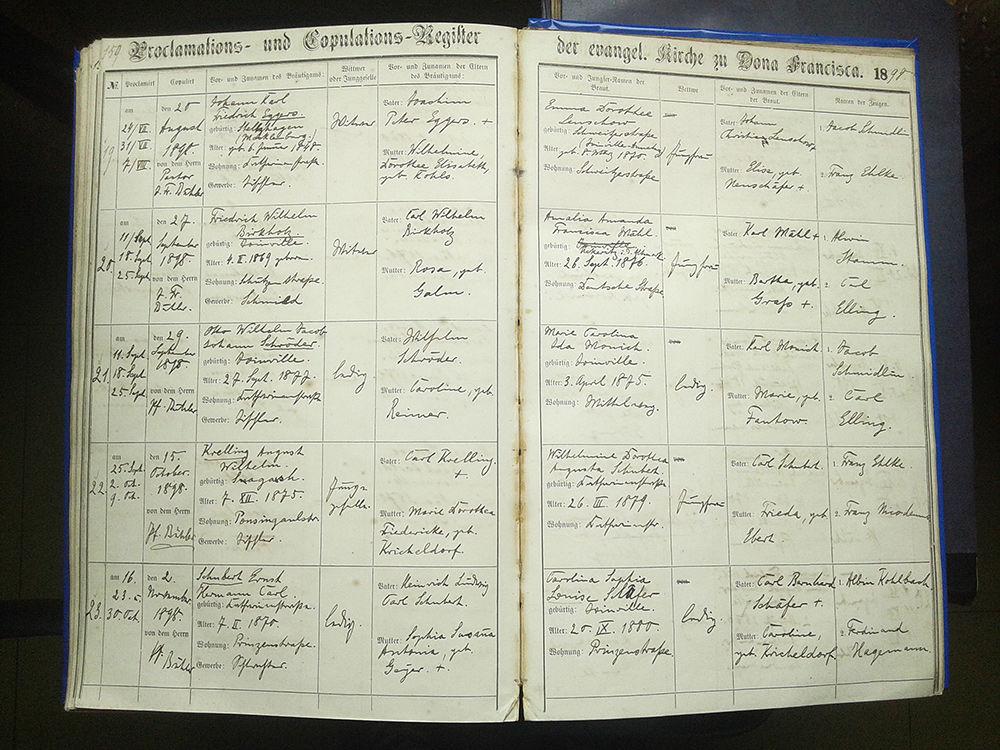 150
Proclamations- und Copulations-Register
der evangel. Kirche zu Dona Francisca. 1898
№
Proclamirt
Copulirt
Vor- und Zunamen des Bräutigams:
Wittwer oder Junggeselle
Vor- und Zunamen der Eltern des Bräutigams:
Vor- und Jungfer-Namen der Braut.
Wittwe
Vor- und Zunamen der Eltern der Braut.
Namen der Zeugen.
am
24/VII
31/VII
7/VIII
den 20
August
1898.
von dem Herrn
Pastor
Johann Karl
Friedrich Eggers.
gebürtig:
Mecklenburg.
Alter: geb. 6 Januar 1848
Wohnung: Katharinenstraße.
Gewerbe:
Witwer
Vater: Joachim
Peter Eggers. +
Mutter: Wilhelmine,
Dorothee Elisabeth,
geb. Kohls.
Emma Dorothee
Lenschow
Schweizerstraße
Jungfrau
Vater: Johann
Christian Lenschow
Mutter: Elise, geb.
Neuschäfer +
1. Jacob Schmidlin
2. Franz Ehlke.
20.
am
11/Sept.
18. Sept
25. Sept
den 27.
September
1898
von dem Herrn
J. Fr.
Bühler.
Friedrich Wilhelm
Birkholz.
gebürtig: Joinville.
Alter: 4. II. 1869 geboren.
Wohnung: straße.
Gewerbe: Schmied
Witwer
Vater: Carl Wilhelm
Birkholz
Mutter: Rosa, geb.
Galm.
Amalia Amanda
Francisca Mähl.
Alter: 28. Sept. 1876
Wohnung: Deutsche Straße
Jungfrau
Vater: Karl Mähl +
Mutter: Bertha, geb.
+
1. Alwin
Stamm.
2. Carl
Elling.
21.
am
11. Sept
18. Sept
25. Sept
den 29.
September
1898.
von dem Herrn
Pf. Bühler
Otto Wilhelm Jacob
Johann Schröder.
gebürtig: Joinville.
Alter: 27. Sept. 1877.
Wohnung: Katharinenstraße
Gewerbe:
ledig.
Vater: Wilhelm
Schröder.
Mutter: Caroline, geb.
Reimer.
Marie Carolina
Ida Monich.
gebürtig: Joinville.
Alter: 3. April 1875.
Wohnung: Mittelweg.
ledig.
Vater: Karl Monich.
Mutter: Marie, geb.
Fantow.
1. Jacob
Schmidlin.
2. Carl
Elling.
22.
am
25. Sept.
2. Oct.
9. Oct.
den 15.
October.
1898.
von dem Herrn
Pf. Bühler
Krelling August
Wilhelm.
gebürtig:
Alter: 7. XII. 1875.
Wohnung:
Gewerbe:
Jung-
geselle.
Vater: Carl Krelling.
+
Mutter: Marie Dorothea
Friedericke, geb.
Kricheldorf.
Wilhelmine Dorothea
Augusta Schubert.
gebürtig: Katharinenstraße.
Alter: 26. III. 1879.
Wohnung: Katharinenstr.
Jungfrau
Vater: Carl Schubert.
Mutter: Frieda, geb.
Ebert
1. Franz Ehlke.
2. Franz Nicodemus
23.
am 16.
23. u.
30. Oct.
den 2.
November
1898.
von dem Herrn
Pf.
Bühler
Schubert Ernst
Hermann Carl.
gebürtig: Katharinenstraße.
Alter: 7. II. 1870.
Wohnung: Prinzenstraße.
Gewerbe:
ledig.
Vater: Heinrich Ludwig
Carl Schubert.
Mutter: Sophia Susana
Antonia, geb.
Geyer. +
Carolina Sophia
Louise Schäfer
gebürtig: Joinville.
Alter: 20. IX. 1880.
Wohnung: Prinzenstraße
ledig.
Vater: Carl Bernhard
Schäfer +.
Mutter: Caroline,
geb. Kricheldorf
1. Albin Kohlbach
2. Ferdinand
Hagemann.